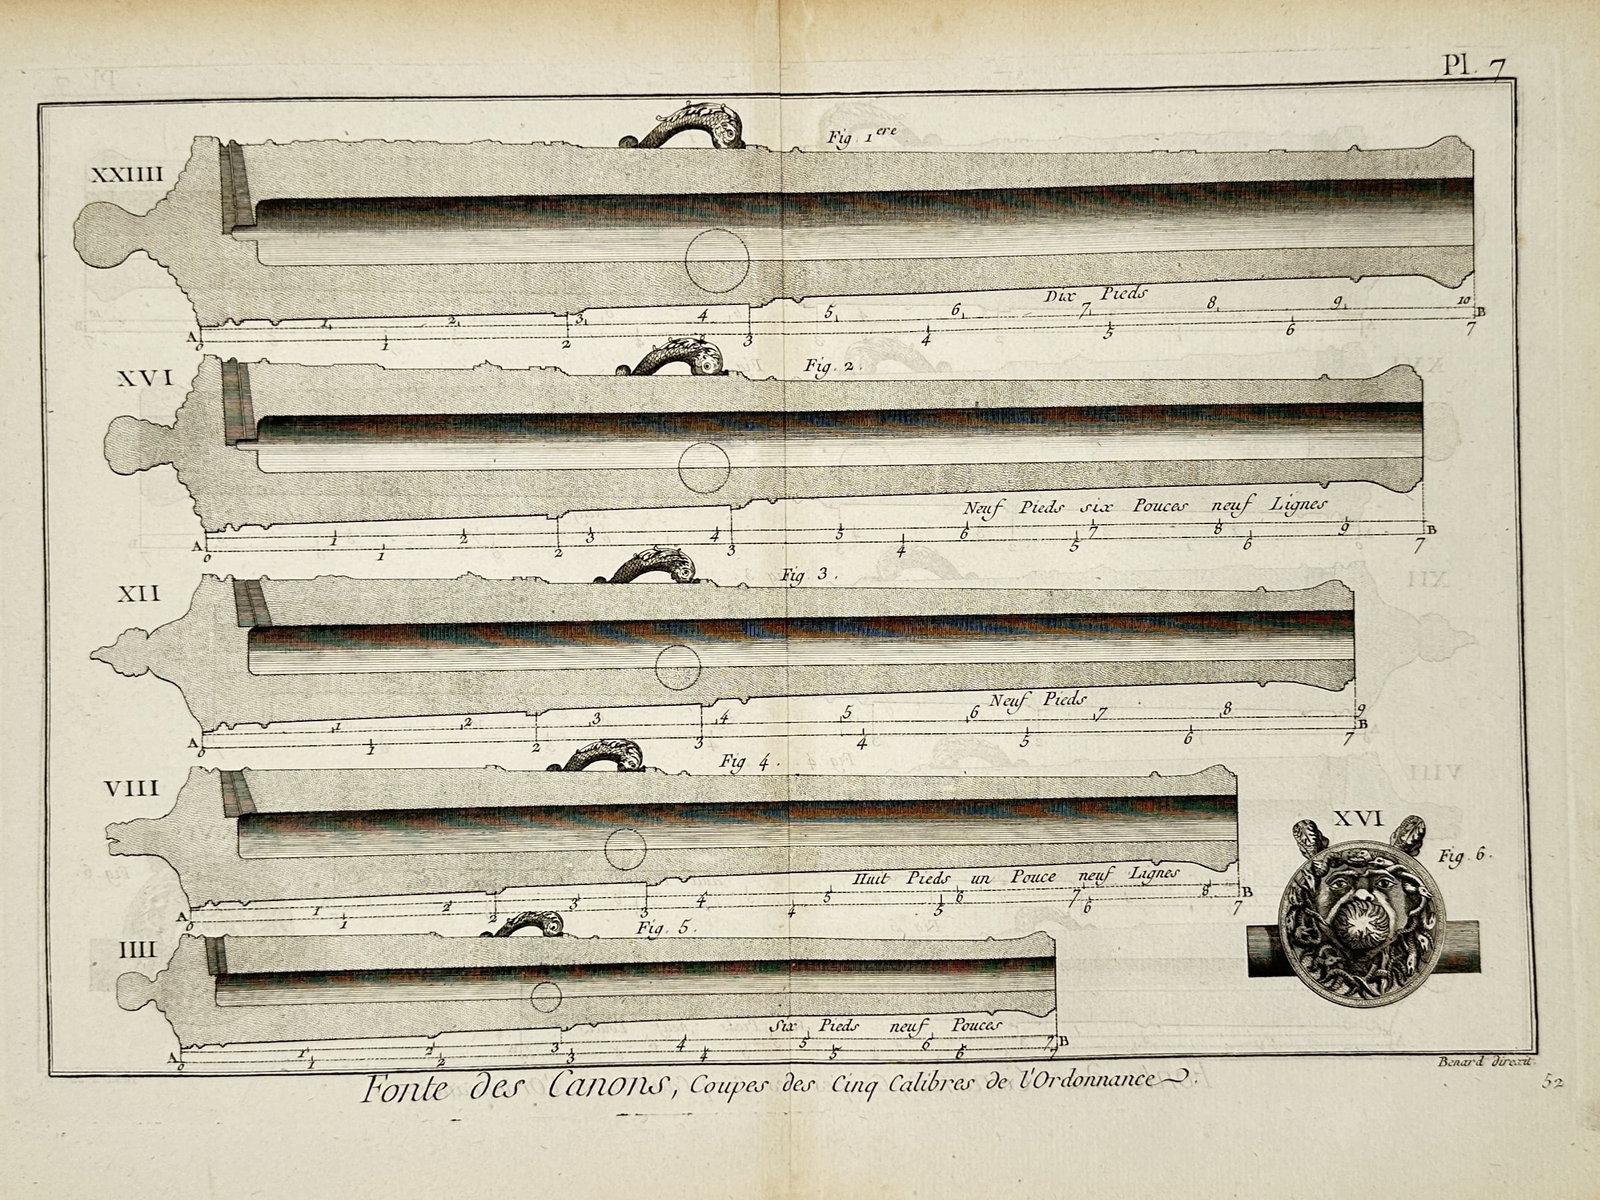 Pl. 7
Fig 1ere
XXIIII
Dix Pieds
1 2 3 4 5 6 7 8 9 10
A B
0 1 2 3 4 5 6 7
Fig. 2.
XVI
Neuf Pieds six Pouces neuf Lignes
1 2 3 4 5 6 7 8 9
A B
0 1 2 3 4 5 6 7
Fig 3.
XII
Neuf Pieds
1 2 3 4 5 6 7 8 9
A B
0 1 2 3 4 5 6 7
Fig 4.
VIII
Huit Pieds un Pouce neuf Lignes
1 2 3 4 5 6 7 8
A B
0 1 2 3 4 5 6 7
XVI
Fig. 6.
Fig. 5.
IIII
Six Pieds neuf Pouces
1 2 3 4 5 6 7
A B
0 1 2 3 4 5 6 7
Benard direxit.
52
Fonte des Canons, Coupes des Cinq Calibres de l'Ordonnance.